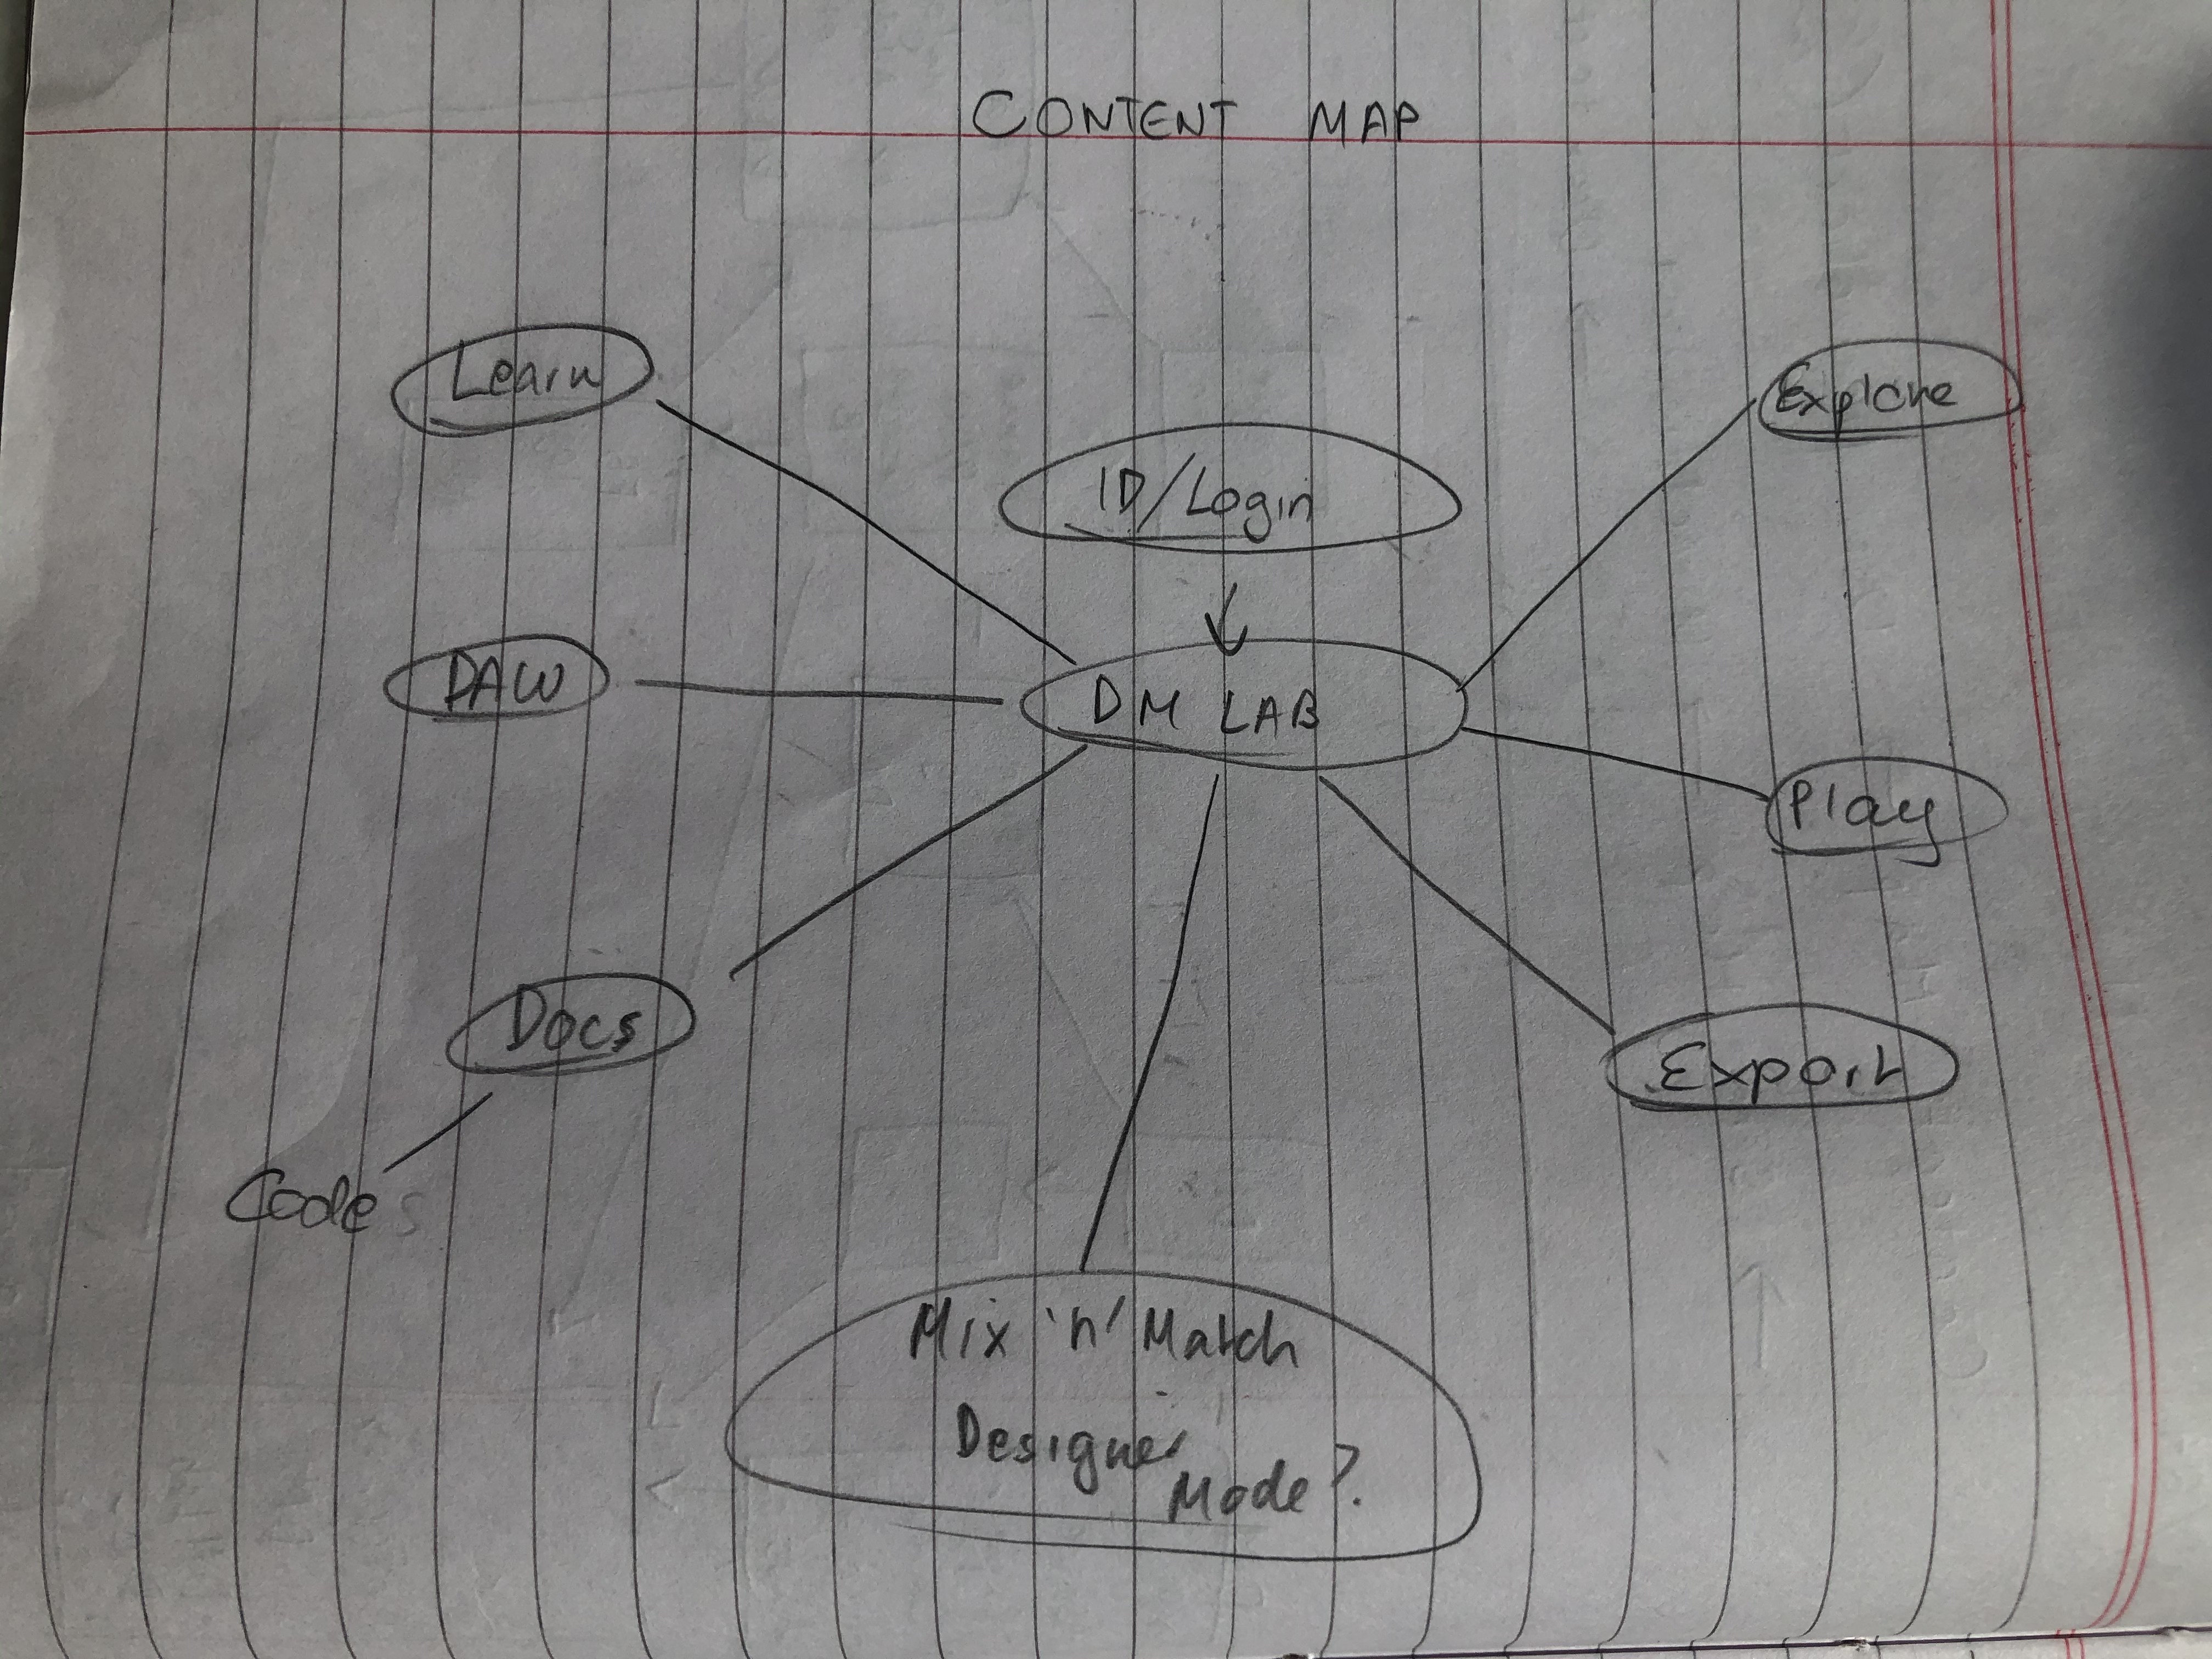 CONTENT MAP
Learn
Explore
ID/Login
DAW
DM LAB
Play
Docs
Export
Codes
Mix 'n' Match
Designer
Mode?